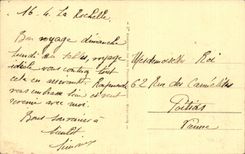 16.4. La Rochelle
Bon voyage dimanche
lundi au
voyage
idéale vous contez tout
cela en arrivant. Raymonde
vous embrasse bien et est
revenue avec moi.
Bons souvenirs à
bientôt
Mademoiselle Roi
62 Rue des Carmélites
Poitiers
Vienne